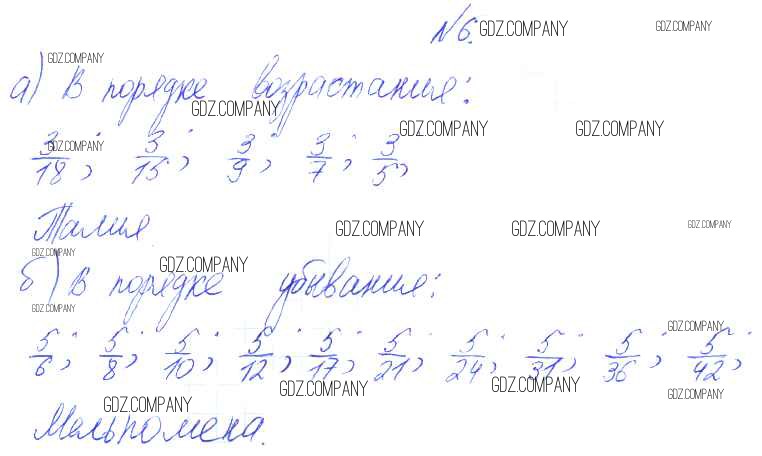 №6. GDZ.COMPANY GDZ.COMPANY
GDZ.COMPANY
а) В порядке возрастания:
GDZ.COMPANY
GDZ.COMPANY GDZ.COMPANY
GDZ.COMPANY
3/18; 3/15; 3/9; 3/7; 3/5;
Талия.
GDZ.COMPANY GDZ.COMPANY GDZ.COMPANY
GDZ.COMPANY GDZ.COMPANY
б) В порядке убывания:
GDZ.COMPANY
GDZ.COMPANY
5/6; 5/8; 5/10; 5/12; 5/17; 5/21; 5/24; 5/31; 5/36; 5/42;
GDZ.COMPANY GDZ.COMPANY GDZ.COMPANY
GDZ.COMPANY
Мельпомена.